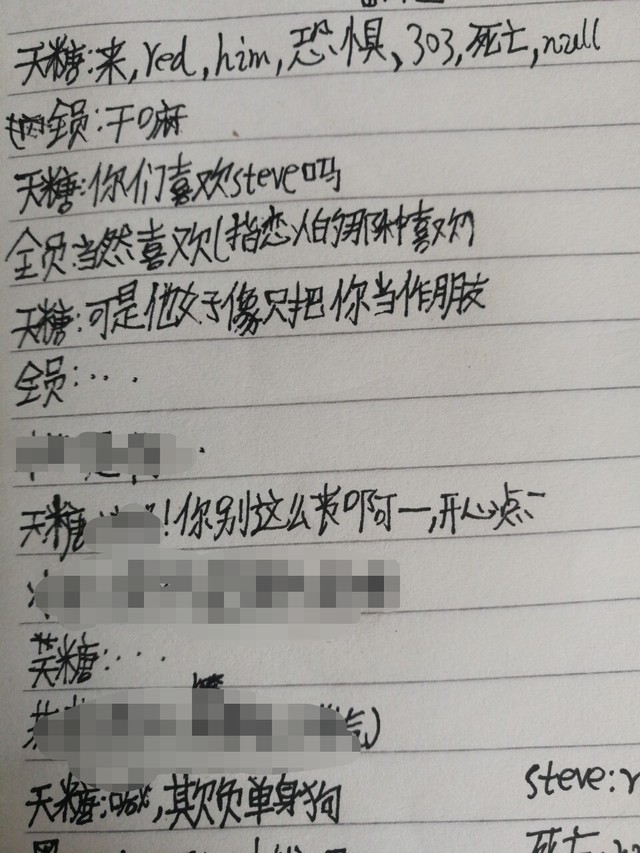 天糖:来,red,him,恐惧,303,死亡,null
全员:干嘛
天糖:你们喜欢steve吗
全员:当然喜欢(指恋人的那种喜欢)
天糖:可是他好像只把你当作朋友
全员:...
天糖 !你别这么丧啊一,开心点
糖:...
气)
天糖:哈,欺负单身狗
steve:
死亡